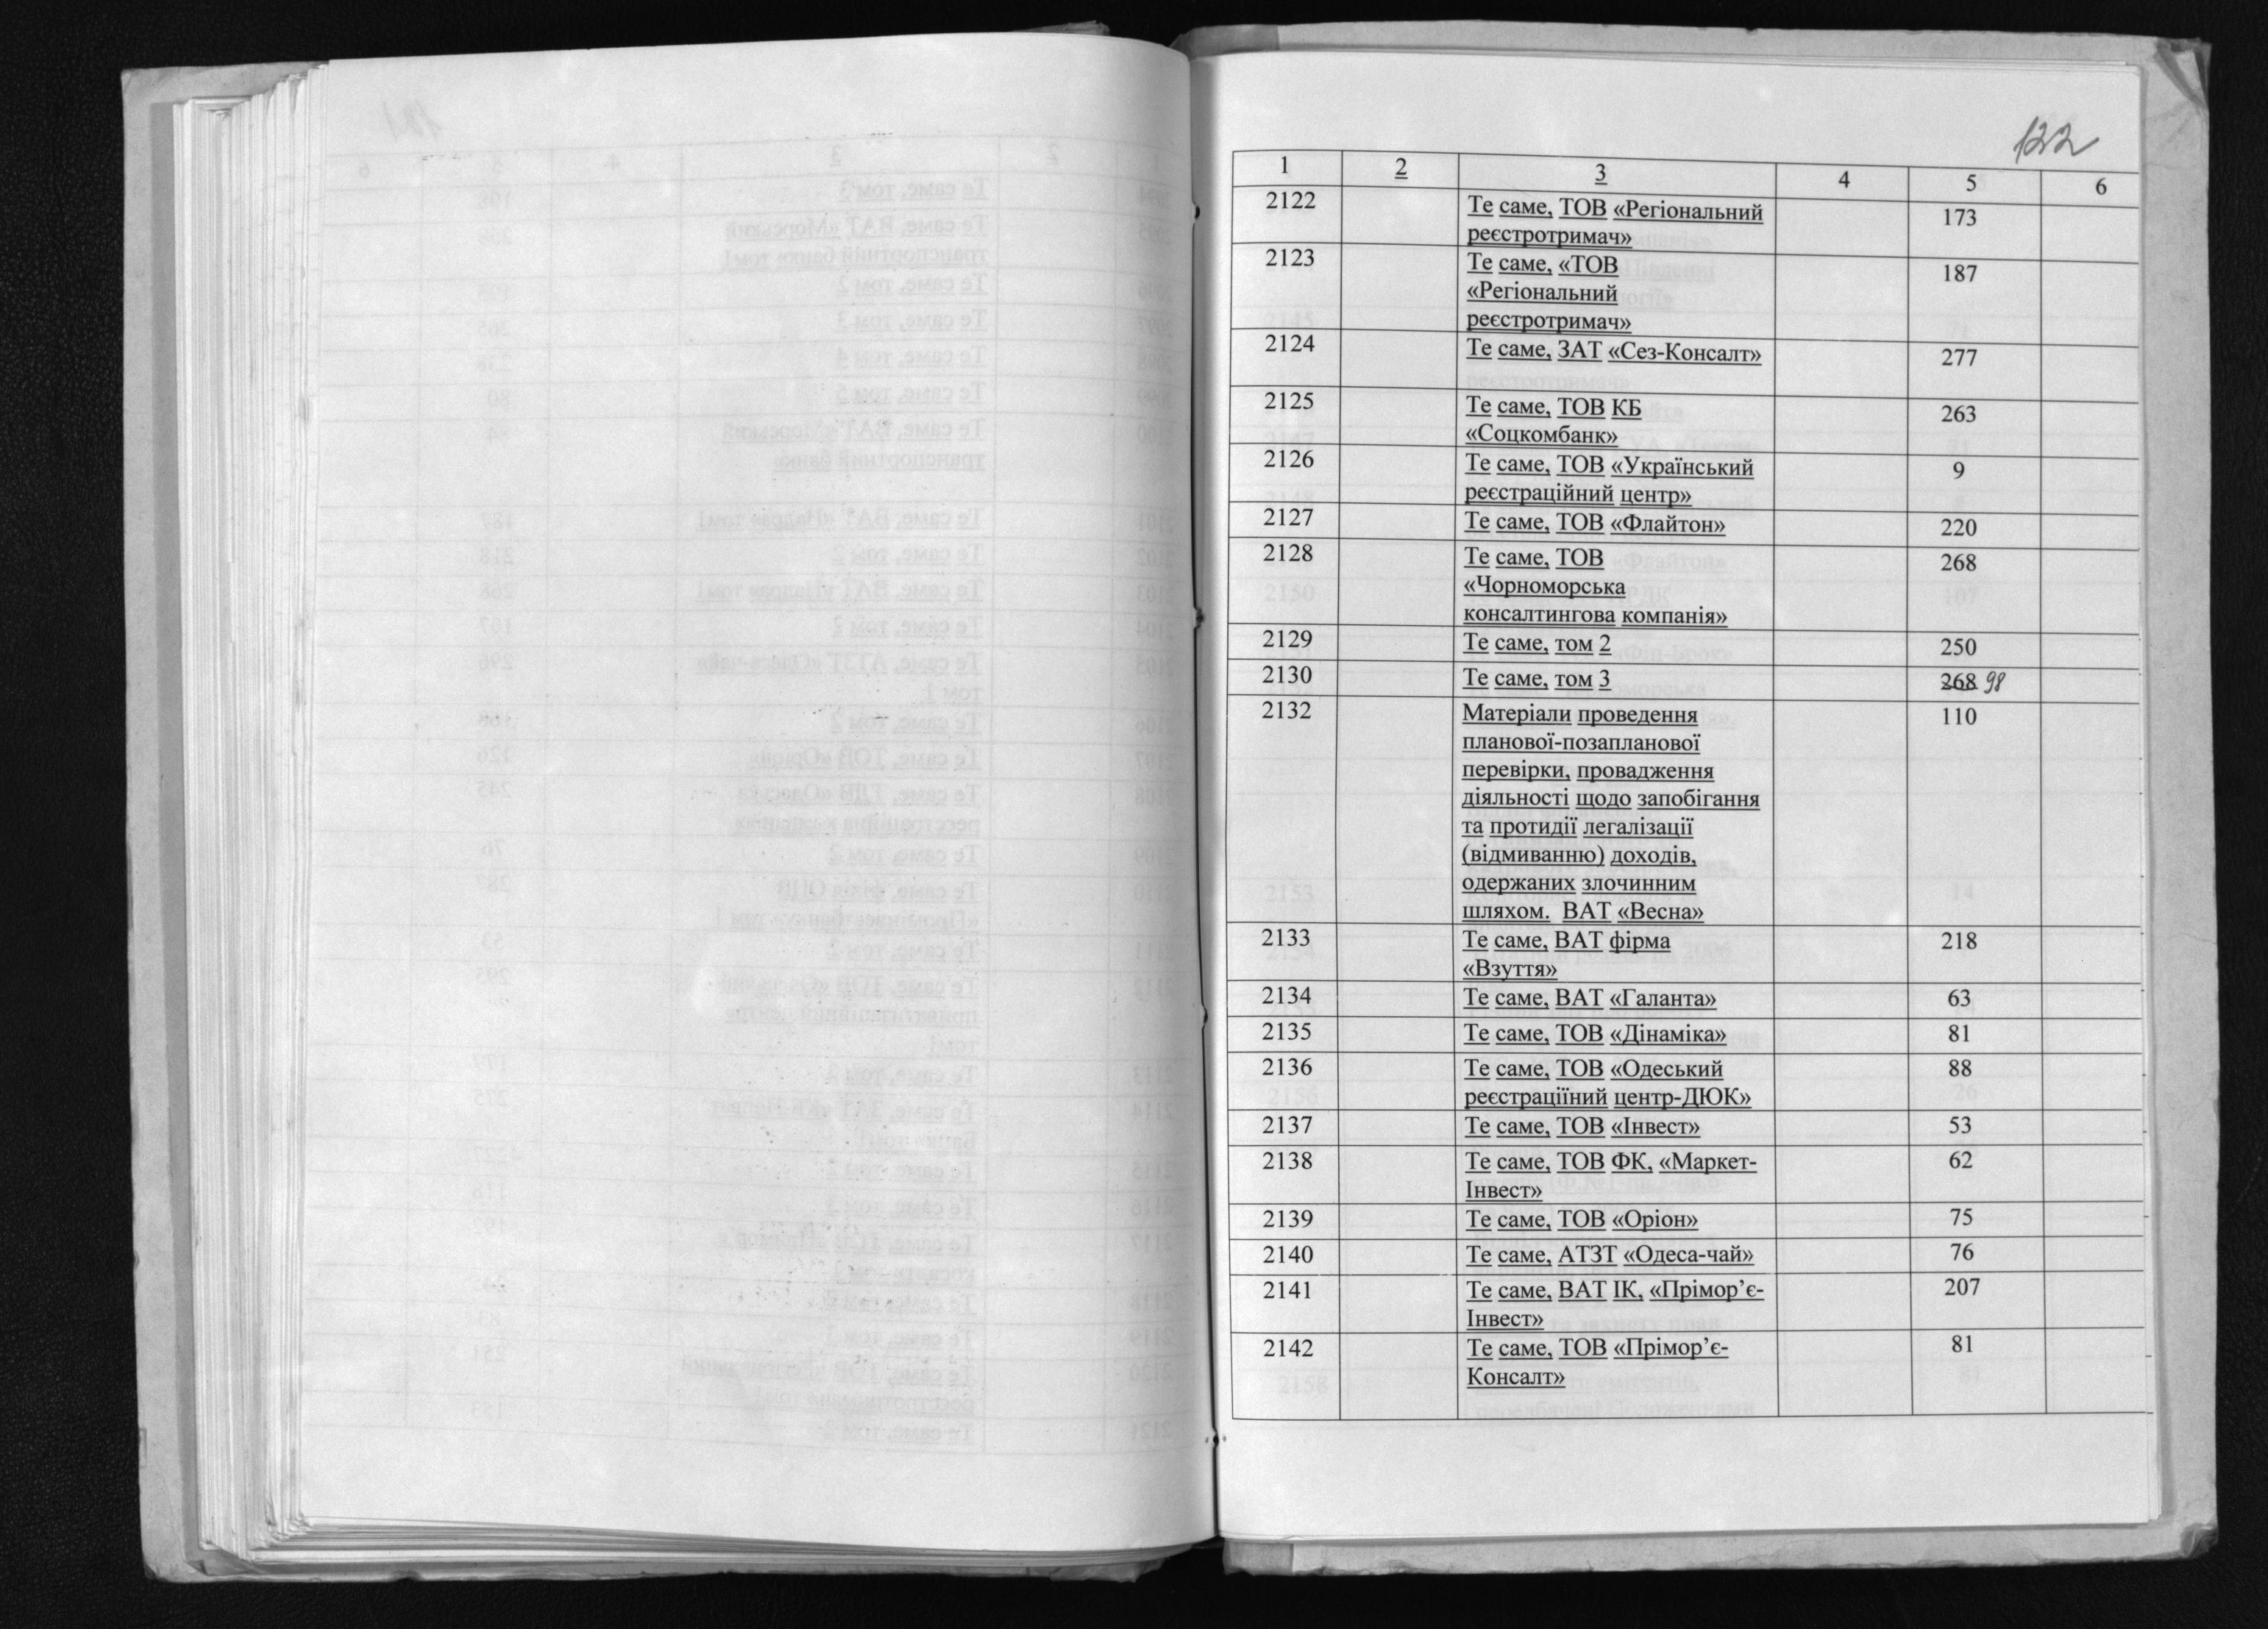 122
1 2 3 4 5 6
2122 Те саме, ТОВ «Регіональний 173
реєстротримач»
2123 Те саме, «ТОВ 187
«Регіональний
реєстротримач»
2124 Те саме, ЗАТ «Сез-Консалт» 277
2125 Те саме, ТОВ КБ 263
«Соцкомбанк»
2126 Те саме, ТОВ «Український 9
реєстраційний центр»
2127 Те саме, ТОВ «Флайтон» 220
2128 Те саме, ТОВ 268
«Чорноморська
консалтингова компанія»
2129 Те саме, том 2 250
2130 Те саме, том 3 268 98
2132 Матеріали проведення 110
планової-позапланової
перевірки, провадження
діяльності щодо запобігання
та протидії легалізації
(відмиванню) доходів,
одержаних злочинним
шляхом. ВАТ «Весна»
2133 Те саме, ВАТ фірма 218
«Взуття»
2134 Те саме, ВАТ «Галанта» 63
2135 Те саме, ТОВ «Дінаміка» 81
2136 Те саме, ТОВ «Одеський 88
реєстраціїний центр-ДЮК»
2137 Те саме, ТОВ «Інвест» 53
2138 Те саме, ТОВ ФК, «Маркет- 62
Інвест»
2139 Те саме, ТОВ «Оріон» 75
2140 Те саме, АТЗТ «Одеса-чай» 76
2141 Те саме, ВАТ ІК, «Прімор’є- 207
Інвест»
2142 Те саме, ТОВ «Прімор’є- 81
Консалт»